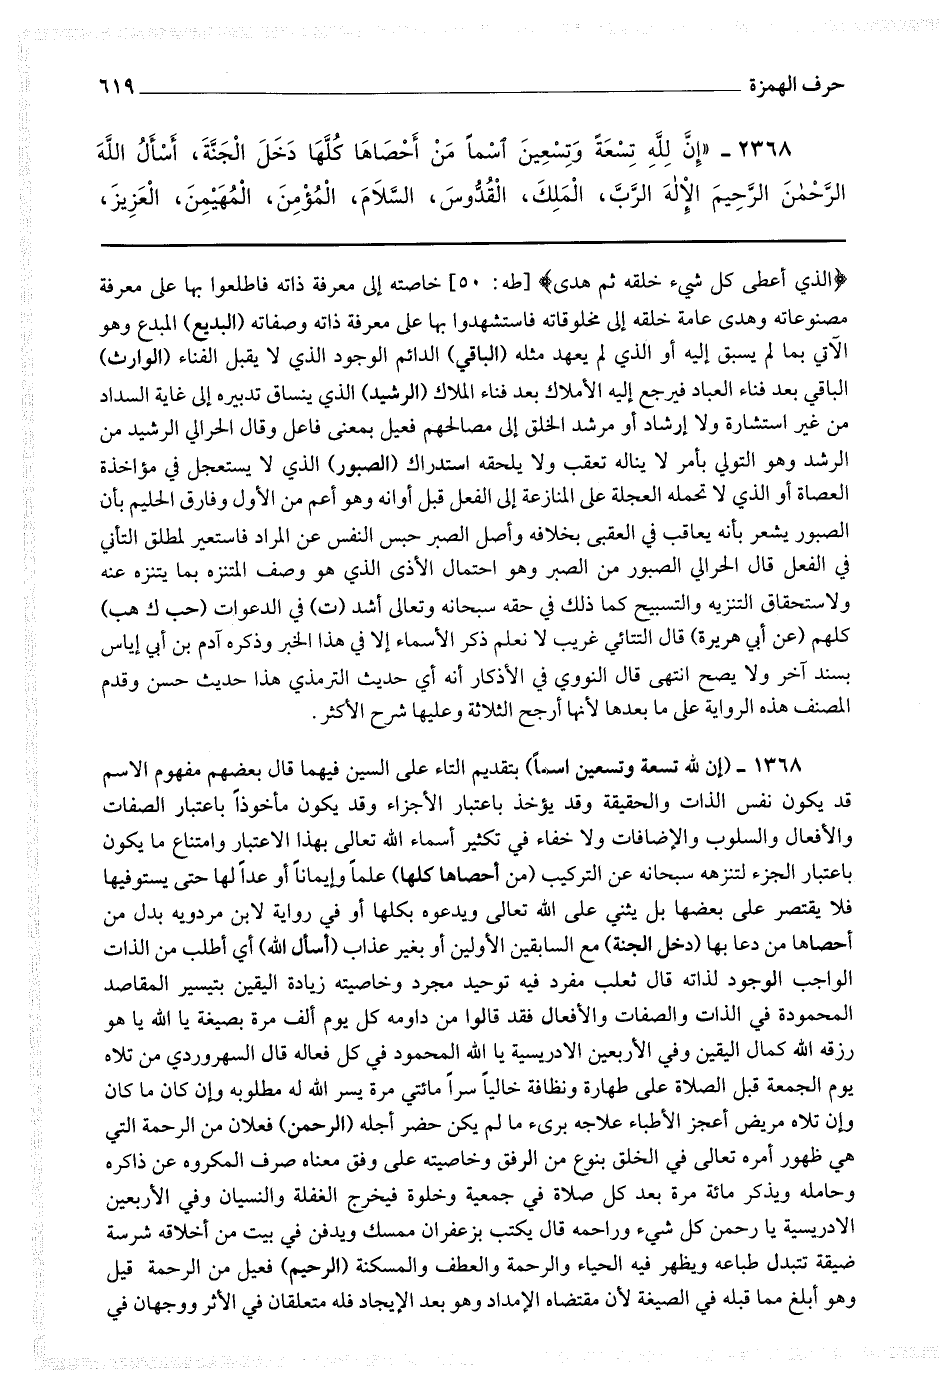 حرف الهمزة ٦١٩
٢٣٦٨ - «إِنَّ لِلَّهِ تِسْعَةً وَتِسْعِينَ ٱسْماً مَنْ أَحْصَاهَا كُلَّهَا دَخَلَ الْجَنَّةَ، أَسْأَلُ اللَّهَ
الرَّحْمٰنَ الرَّحِيمَ الإِلٰهَ الرَّبَّ، الْمَلِكَ، الْقُدُّوسَ، السَّلَامَ، الْمُؤْمِنَ، الْمُهَيْمِنَ، الْعَزِيزَ،
﴿الذي أعطى كل شيء خلقه ثم هدى﴾ [طه: ٥٠] خاصته إلى معرفة ذاته فاطلعوا بها على معرفة
مصنوعاته وهدى عامة خلقه إلى مخلوقاته فاستشهدوا بها على معرفة ذاته وصفاته (البديع) المبدع وهو
الآتي بما لم يسبق إليه أو الذي لم يعهد مثله (الباقي) الدائم الوجود الذي لا يقبل الفناء (الوارث)
الباقي بعد فناء العباد فيرجع إليه الأملاك بعد فناء الملاك (الرشيد) الذي ينساق تدبيره إلى غاية السداد
من غير استشارة ولا إرشاد أو مرشد الخلق إلى مصالحهم فعيل بمعنى فاعل وقال الحرالي الرشيد من
الرشد وهو التولي بأمر لا يناله تعقب ولا يلحقه استدراك (الصبور) الذي لا يستعجل في مؤاخذة
العصاة أو الذي لا تحمله العجلة على المنازعة إلى الفعل قبل أوانه وهو أعم من الأول وفارق الحليم بأن
الصبور يشعر بأنه يعاقب في العقبى بخلافه وأصل الصبر حبس النفس عن المراد فاستعير لمطلق التأني
في الفعل قال الحرالي الصبور من الصبر وهو احتمال الأذى الذي هو وصف المتنزه بما يتنزه عنه
ولاستحقاق التنزيه والتسبيح كما ذلك في حقه سبحانه وتعالى أشد (ت) في الدعوات (حب ك هب)
كلهم (عن أبي هريرة) قال التتائي غريب لا نعلم ذكر الأسماء إلا في هذا الخبر وذكره آدم بن أبي إياس
بسند آخر ولا يصح انتهى قال النووي في الأذكار أنه أي حديث الترمذي هذا حديث حسن وقدم
المصنف هذه الرواية على ما بعدها لأنها أرجح الثلاثة وعليها شرح الأكثر.
١٣٦٨ - (إن لله تسعة وتسعين اسماً) بتقديم التاء على السين فيهما قال بعضهم مفهوم الاسم
قد يكون نفس الذات والحقيقة وقد يؤخذ باعتبار الأجزاء وقد يكون مأخوذاً باعتبار الصفات
والأفعال والسلوب والإضافات ولا خفاء في تكثير أسماء الله تعالى بهذا الاعتبار وامتناع ما يكون
باعتبار الجزء لتنزهه سبحانه عن التركيب (من أحصاها كلها) علماً وإيماناً أو عداً لها حتى يستوفيها
فلا يقتصر على بعضها بل يثني على الله تعالى ويدعوه بكلها أو في رواية لابن مردويه بدل من
أحصاها من دعا بها (دخل الجنة) مع السابقين الأولين أو بغير عذاب (أسأل الله) أي أطلب من الذات
الواجب الوجود لذاته قال ثعلب مفرد فيه توحيد مجرد وخاصيته زيادة اليقين بتيسير المقاصد
المحمودة في الذات والصفات والأفعال فقد قالوا من داومه كل يوم ألف مرة بصيغة يا الله يا هو
رزقه الله كمال اليقين وفي الأربعين الادريسية يا الله المحمود في كل فعاله قال السهروردي من تلاه
يوم الجمعة قبل الصلاة على طهارة ونظافة خالياً سراً مائتي مرة يسر الله له مطلوبه وإن كان ما كان
وإن تلاه مريض أعجز الأطباء علاجه برىء ما لم يكن حضر أجله (الرحمن) فعلان من الرحمة التي
هي ظهور أمره تعالى في الخلق بنوع من الرفق وخاصيته على وفق معناه صرف المكروه عن ذاكره
وحامله ويذكر مائة مرة بعد كل صلاة في جمعية وخلوة فيخرج الغفلة والنسيان وفي الأربعين
الادريسية يا رحمن كل شيء وراحمه قال يكتب بزعفران ممسك ويدفن في بيت من أخلاقه شرسة
ضيقة تتبدل طباعه ويظهر فيه الحياء والرحمة والعطف والمسكنة (الرحيم) فعيل من الرحمة قيل
وهو أبلغ مما قبله في الصيغة لأن مقتضاه الإمداد وهو بعد الإيجاد فله متعلقان في الأثر ووجهان في